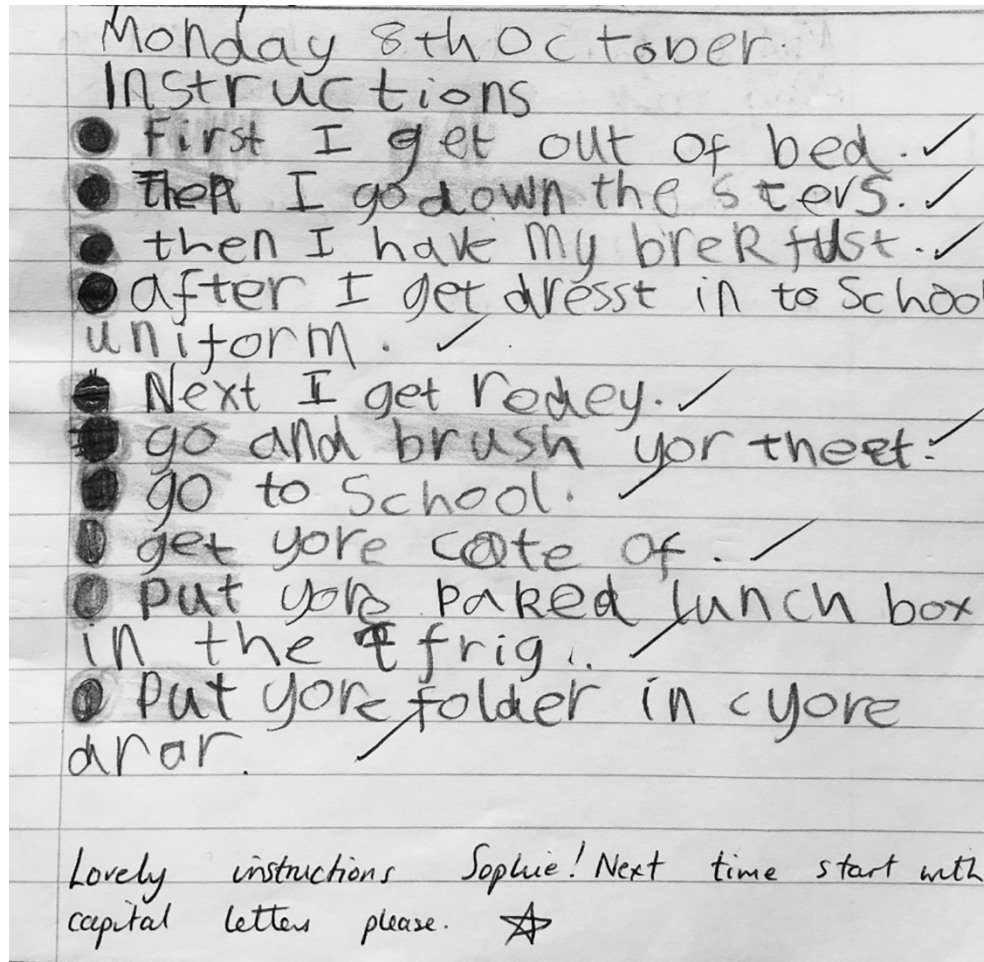 Monday 8th October.
Instructions
● first I get out of bed. ✓
● Then I go down the sters. ✓
● then I have my brekfust. ✓
● after I get dresst in to School
uniform. ✓
● Next I get redey. ✓
● go and brush yor theet. ✓
● go to School. ✓
● get yore cate of. ✓
● put yore paked lunch box
in the frig.. ✓
● put yore folder in cyore
drar. ✓
Lovely instructions Sophie! Next time start with
capital letters please. ☆